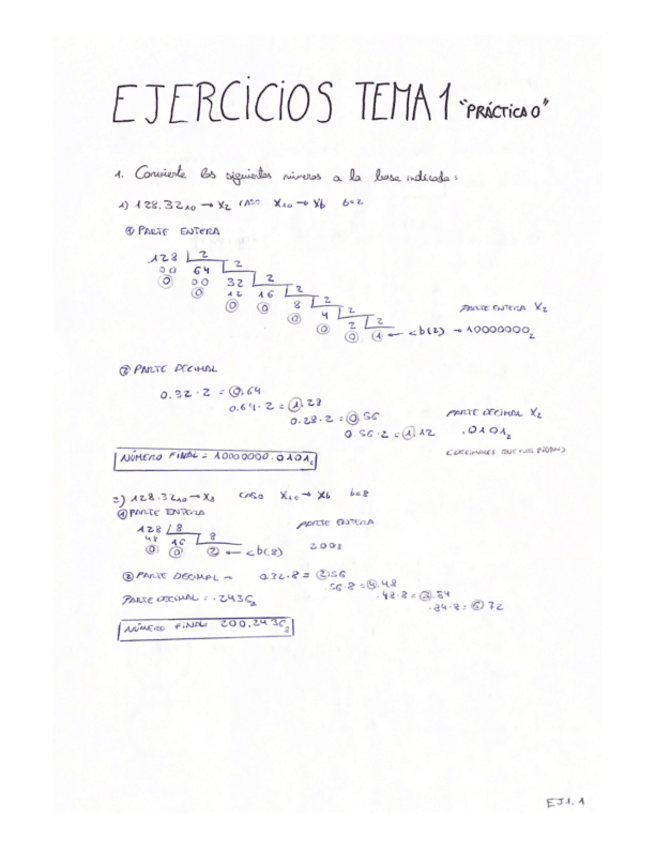 EJERCICIOS TEMA 1 "PRÁCTICA 0"
1. Convierte los siguientes números a la base indicada:
1) 128.32₁₀ → X₂ CASO X₁₀ → Xb b=2
① PARTE ENTERA
128 2
00 64 2
0 00 32 2
0 12 16 2
0 0 8 2
0 4 2
0 2 2
0 1 ← <b(2) → 10000000₂
PARTE ENTERA X₂
② PARTE DECIMAL
0.32 · 2 = 0.64
0.64 · 2 = 1.28
0.28 · 2 = 0.56
0.56 · 2 = 1.12
PARTE DECIMAL X₂
.0101₂
NÚMERO FINAL = 10000000.0101₂
2) 128.32₁₀ → X₈ CASO X₁₀ → Xb b=8
① PARTE ENTERA
128 8
48 16 8
0 0 2 ← <b(8)
PARTE ENTERA
200₈
② PARTE DECIMAL → 0.32 · 8 = 2.56
.56 · 8 = 4.48
.48 · 8 = 3.84
.84 · 8 = 6.72
PARTE DECIMAL = .2436
NÚMERO FINAL 200.2436
EJ1.1